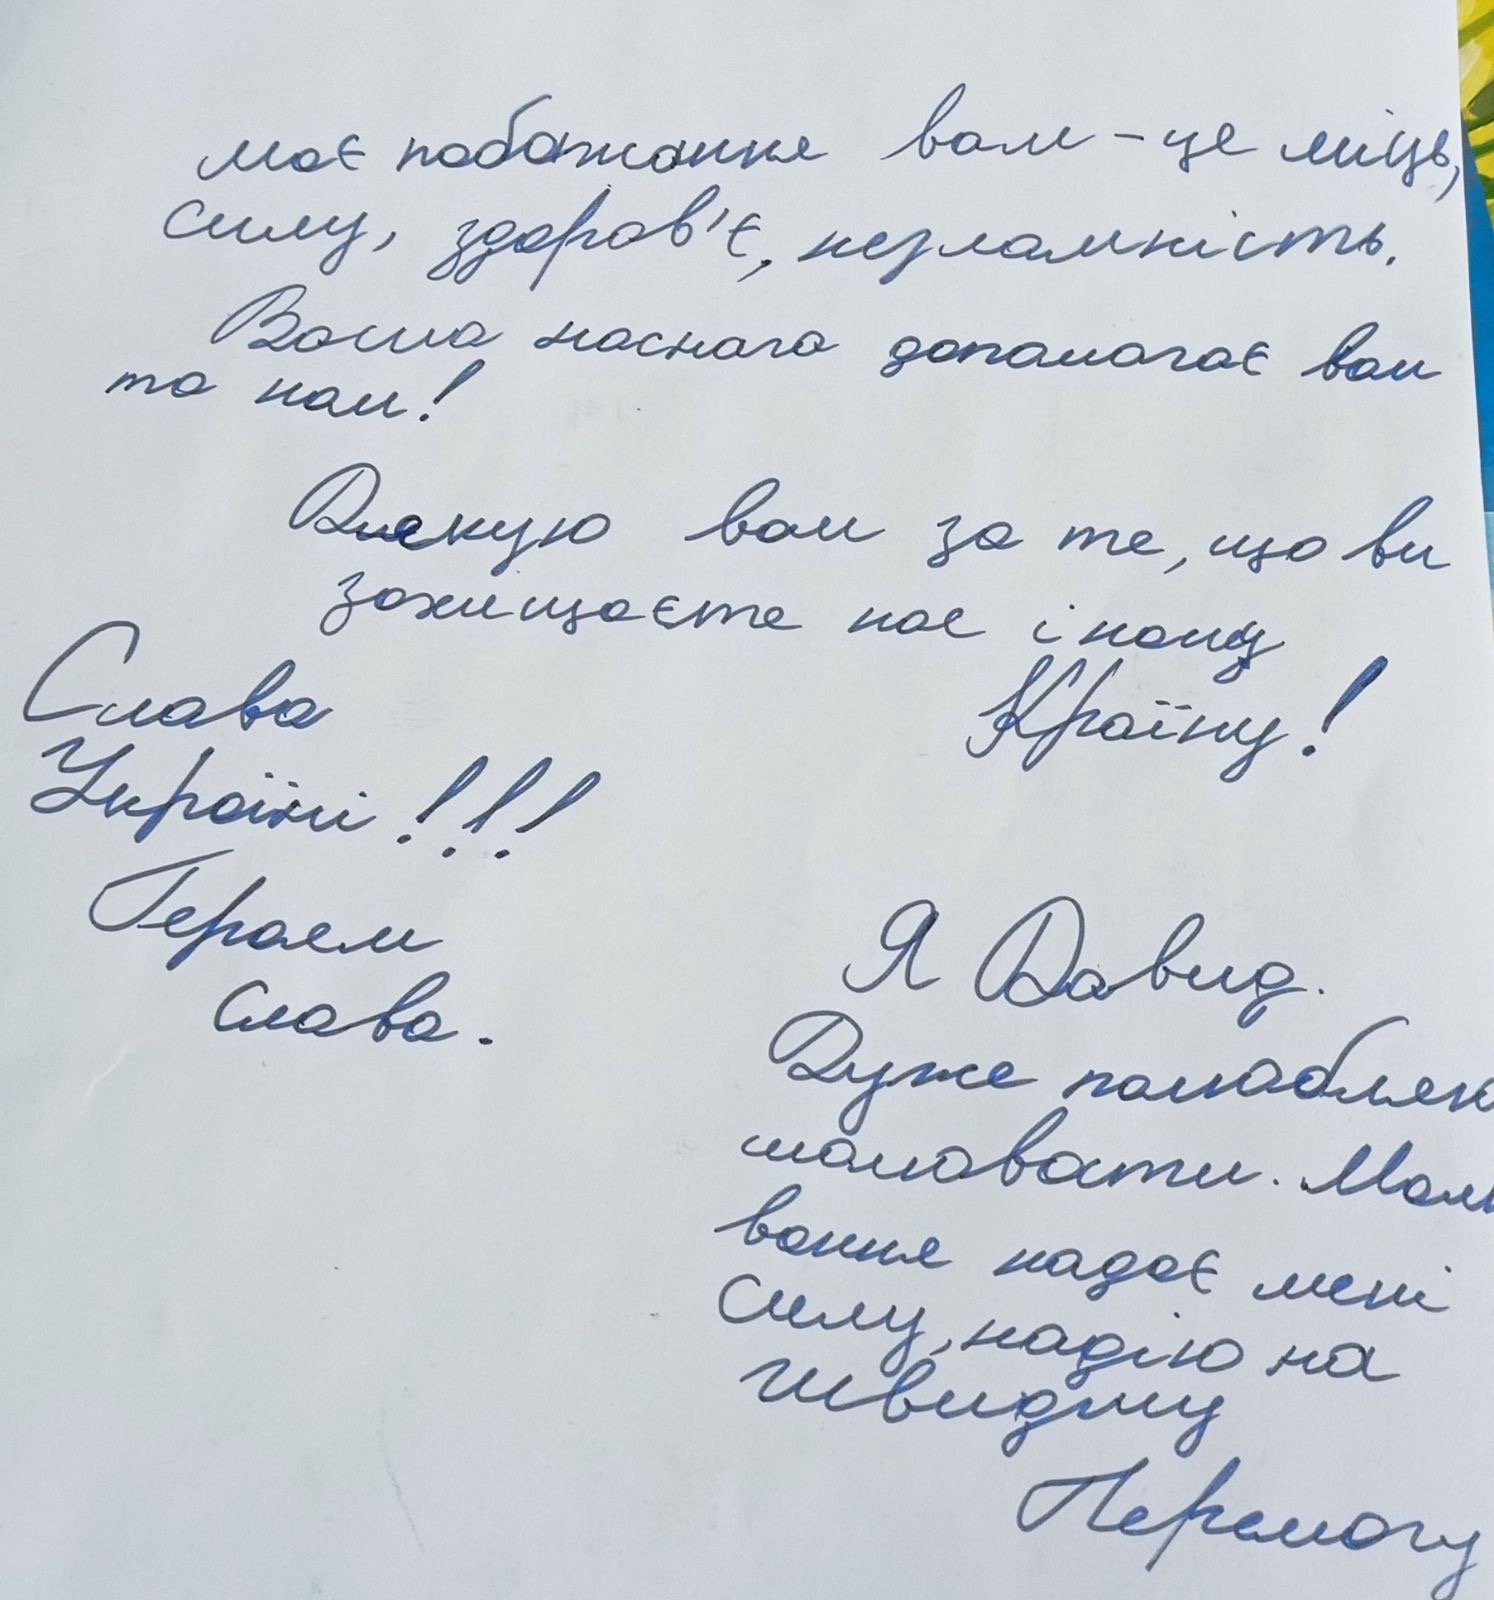 моє побажання вам – це міць,
силу, здоров'є, незламність.
Ваша наснага допомагає вам
та нам!
Дякую вам за те, що ви
захищаєте нас і нашу
Країну!
Слава
Україні!!!
Героям
Слава.
Я Давид.
Дуже полюбляю
малювати. Малю
вання надає мені
силу, надію на
швидшу
Перемогу